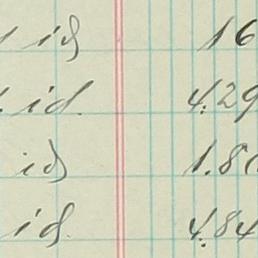 id 16
id. 4.29
id 1.80
id. 4.84